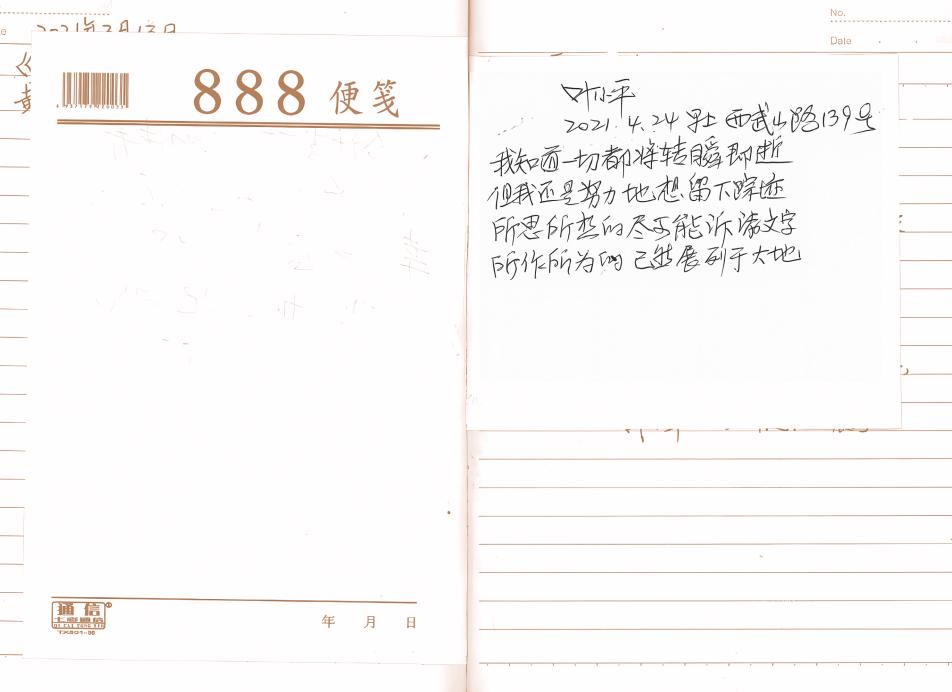 2021年3月13日
888 便笺
通信
七彩通信
QI CAI TONG XIN
TX801-96
年 月 日
No.
Date
叶小平
2021.4.24 早上 西武山路139号
我知道一切都将转瞬即逝
但我还是努力地想留下踪迹
所思所想的尽可能诉诸文字
所作所为的 已然展列于大地